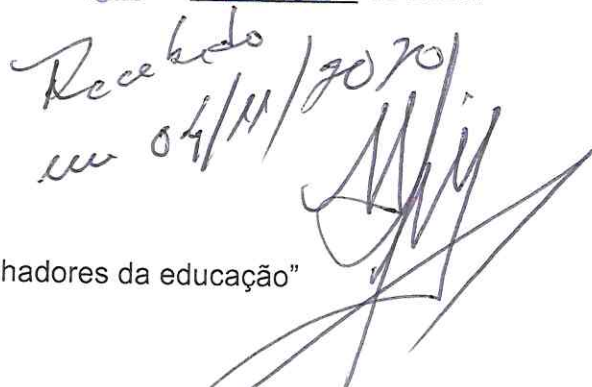 Recebido
em 04/11/2020
hadores da educação”